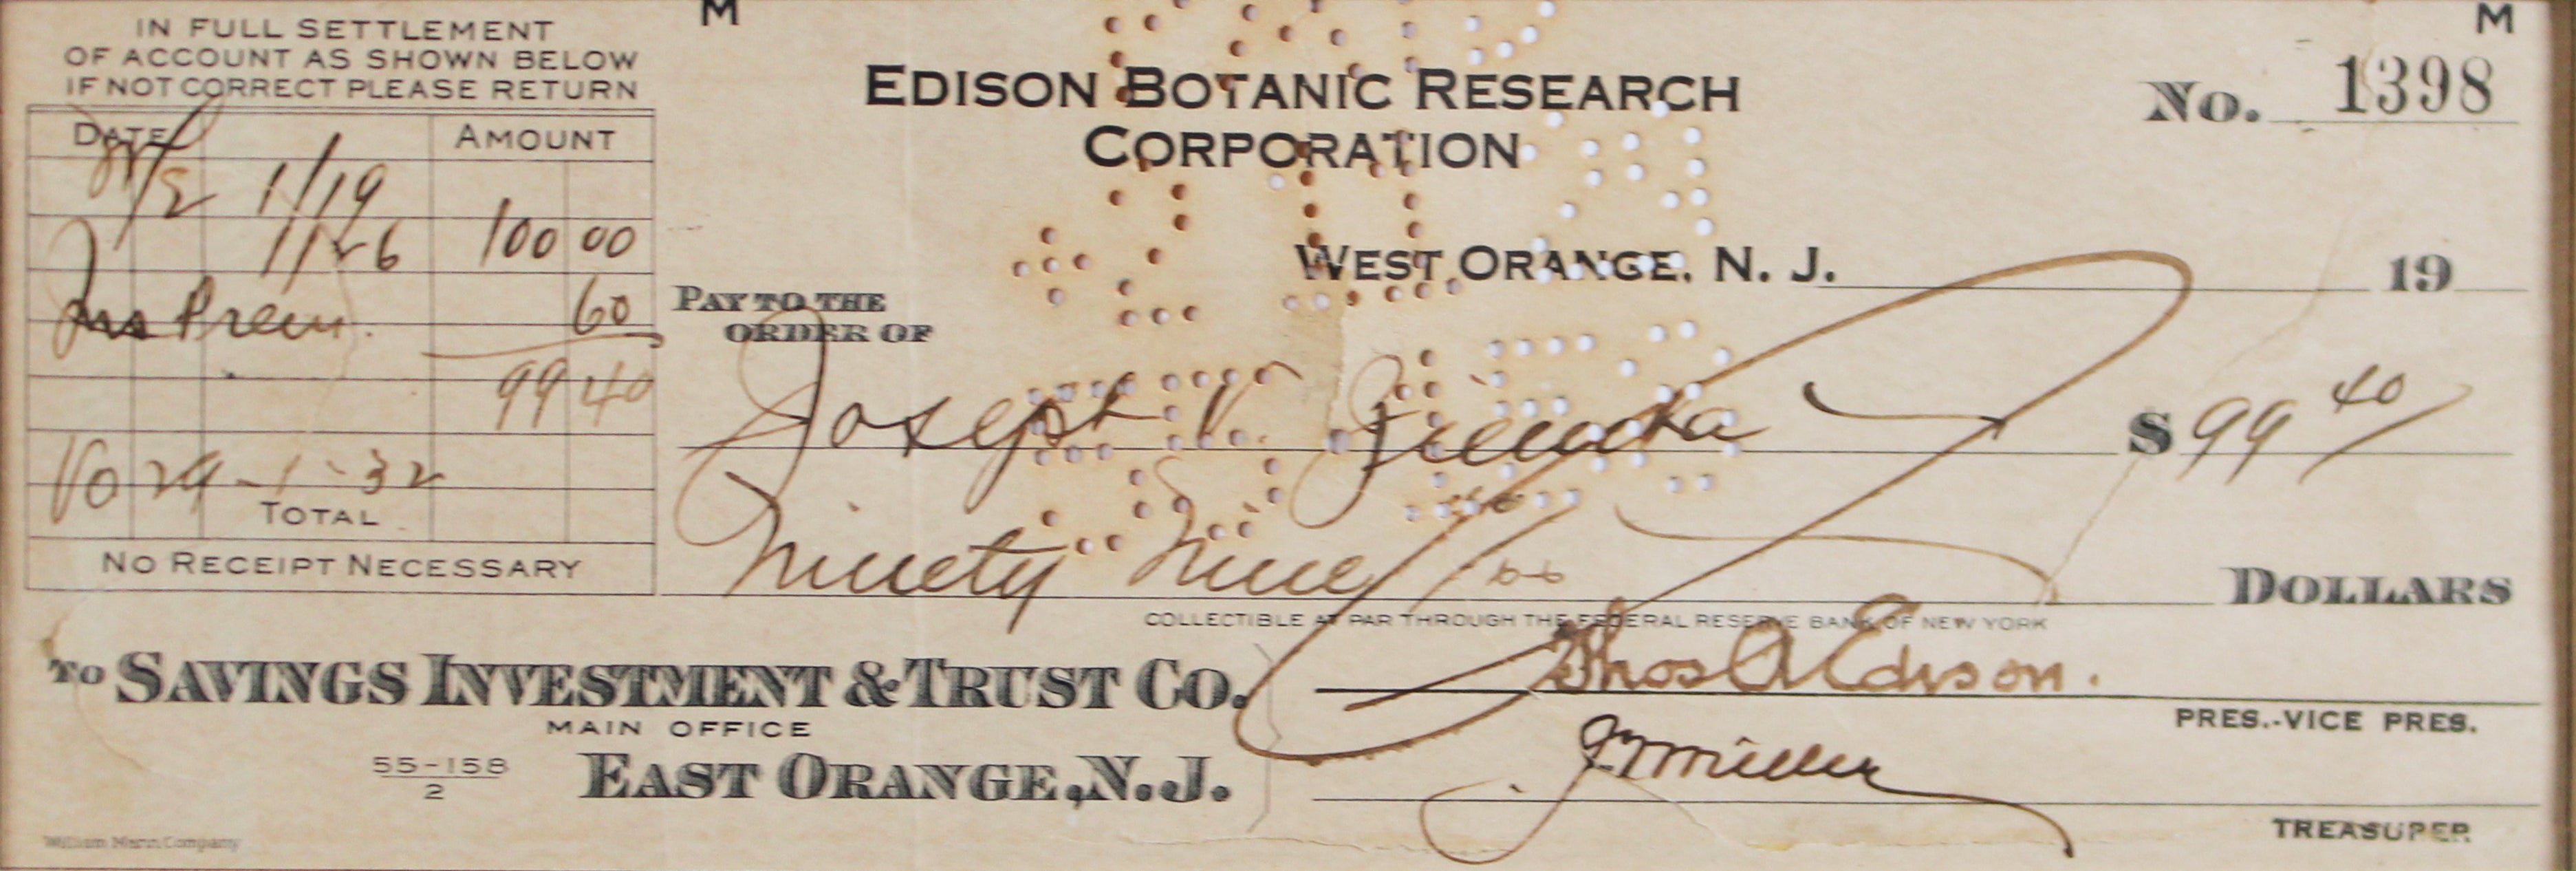 IN FULL SETTLEMENT
OF ACCOUNT AS SHOWN BELOW
IF NOT CORRECT PLEASE RETURN
DATE AMOUNT
1/19
1/26 100 00
Ins Prem. 60
99 40
Vo 29-1-32
TOTAL
NO RECEIPT NECESSARY
M M
EDISON BOTANIC RESEARCH
CORPORATION
No. 1398
WEST ORANGE, N. J. 19
PAY TO THE
ORDER OF
Joseph V. $ 99 40
Ninety Nine DOLLARS
COLLECTIBLE AT PAR THROUGH THE FEDERAL RESERVE BANK OF NEW YORK
TO SAVINGS INVESTMENT & TRUST CO.
MAIN OFFICE
55-158
2
EAST ORANGE, N. J.
William Mann Company
Thos A Edison.
PRES.-VICE PRES.
Miller
TREASURER